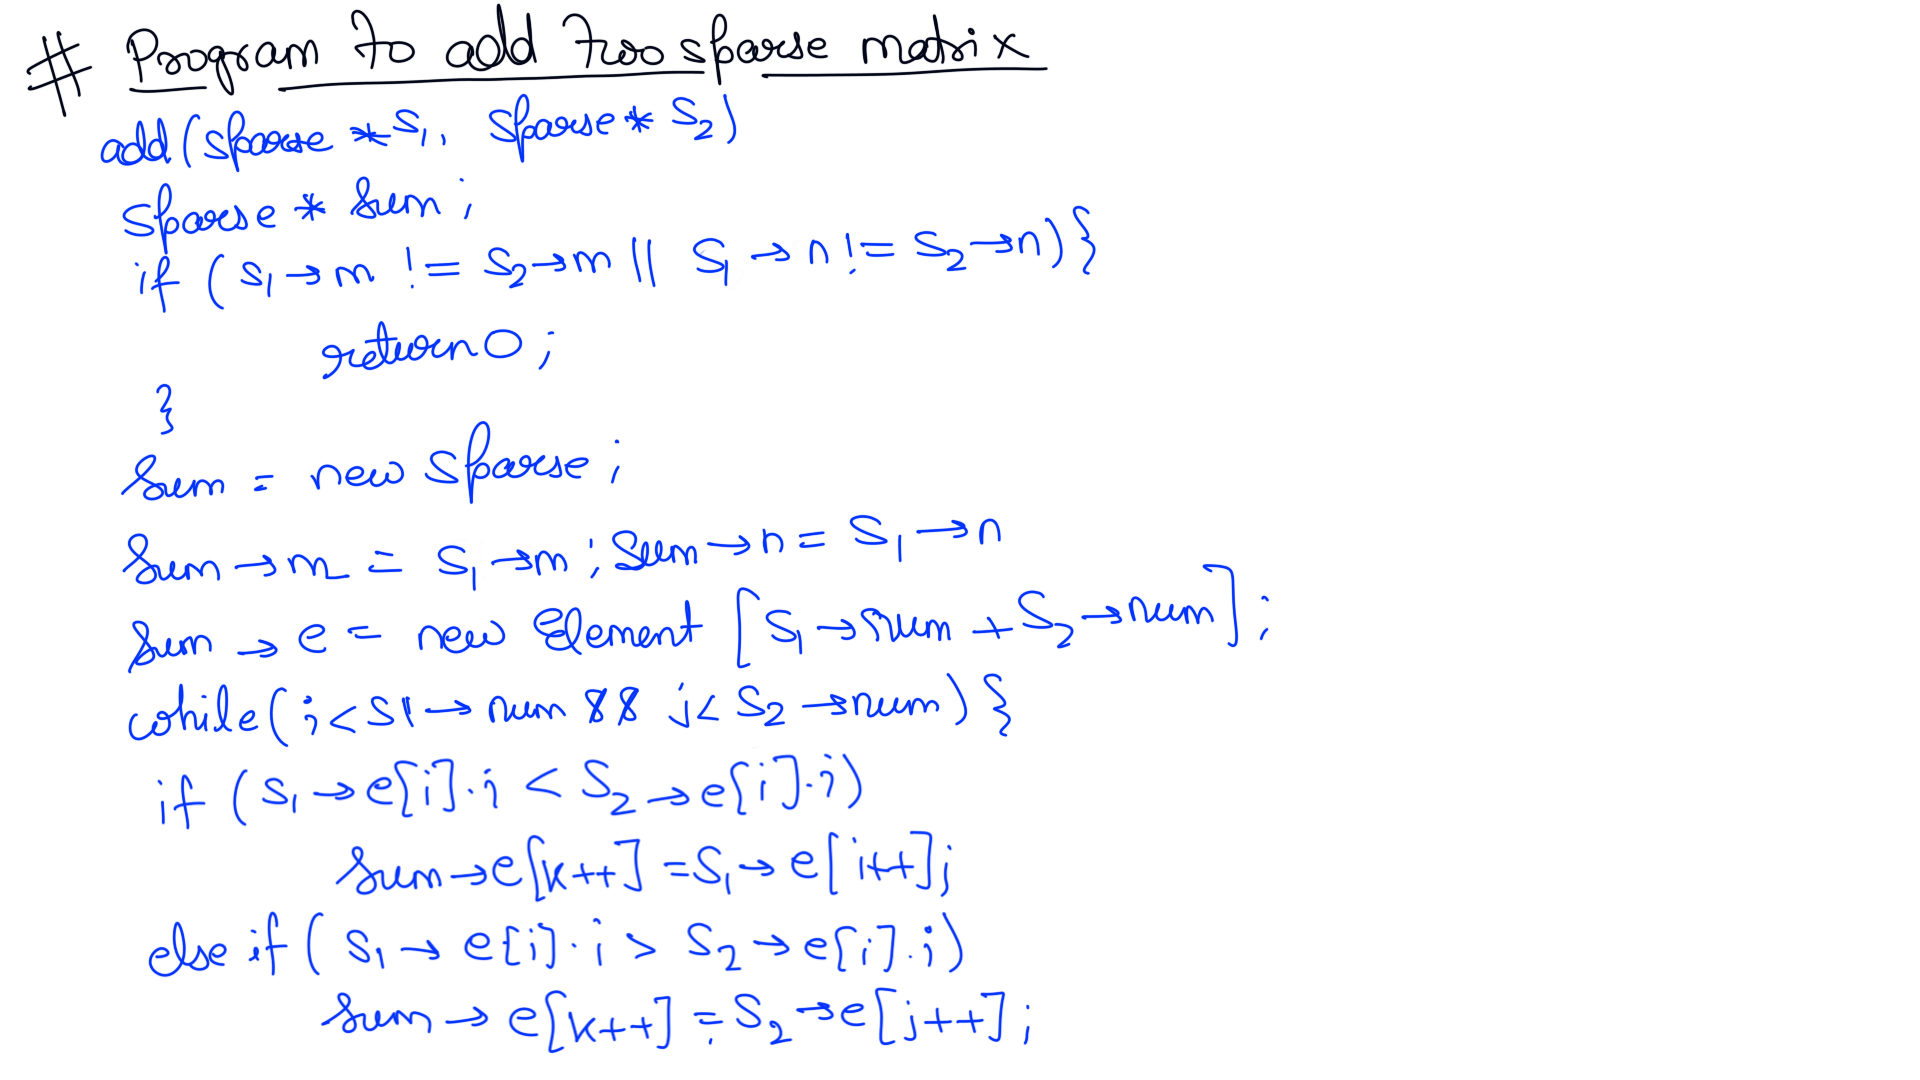 # Program to add two sparse matrix
add(sparse *S1, sparse* S2)
sparse * sum;
if (S1→m != S2→m || S1→n != S2→n){
return 0;
}
sum = new sparse;
sum→m = S1→m; sum→n = S1→n
sum→e = new Element [S1→num + S2→num];
while(i<S1→num && j< S2→num){
if (S1→e[i].i < S2→e[i].i)
sum→e[k++] = S1→e[i++];
else if (S1→e[i].i > S2→e[i].i)
sum→e[k++] = S2→e[j++];